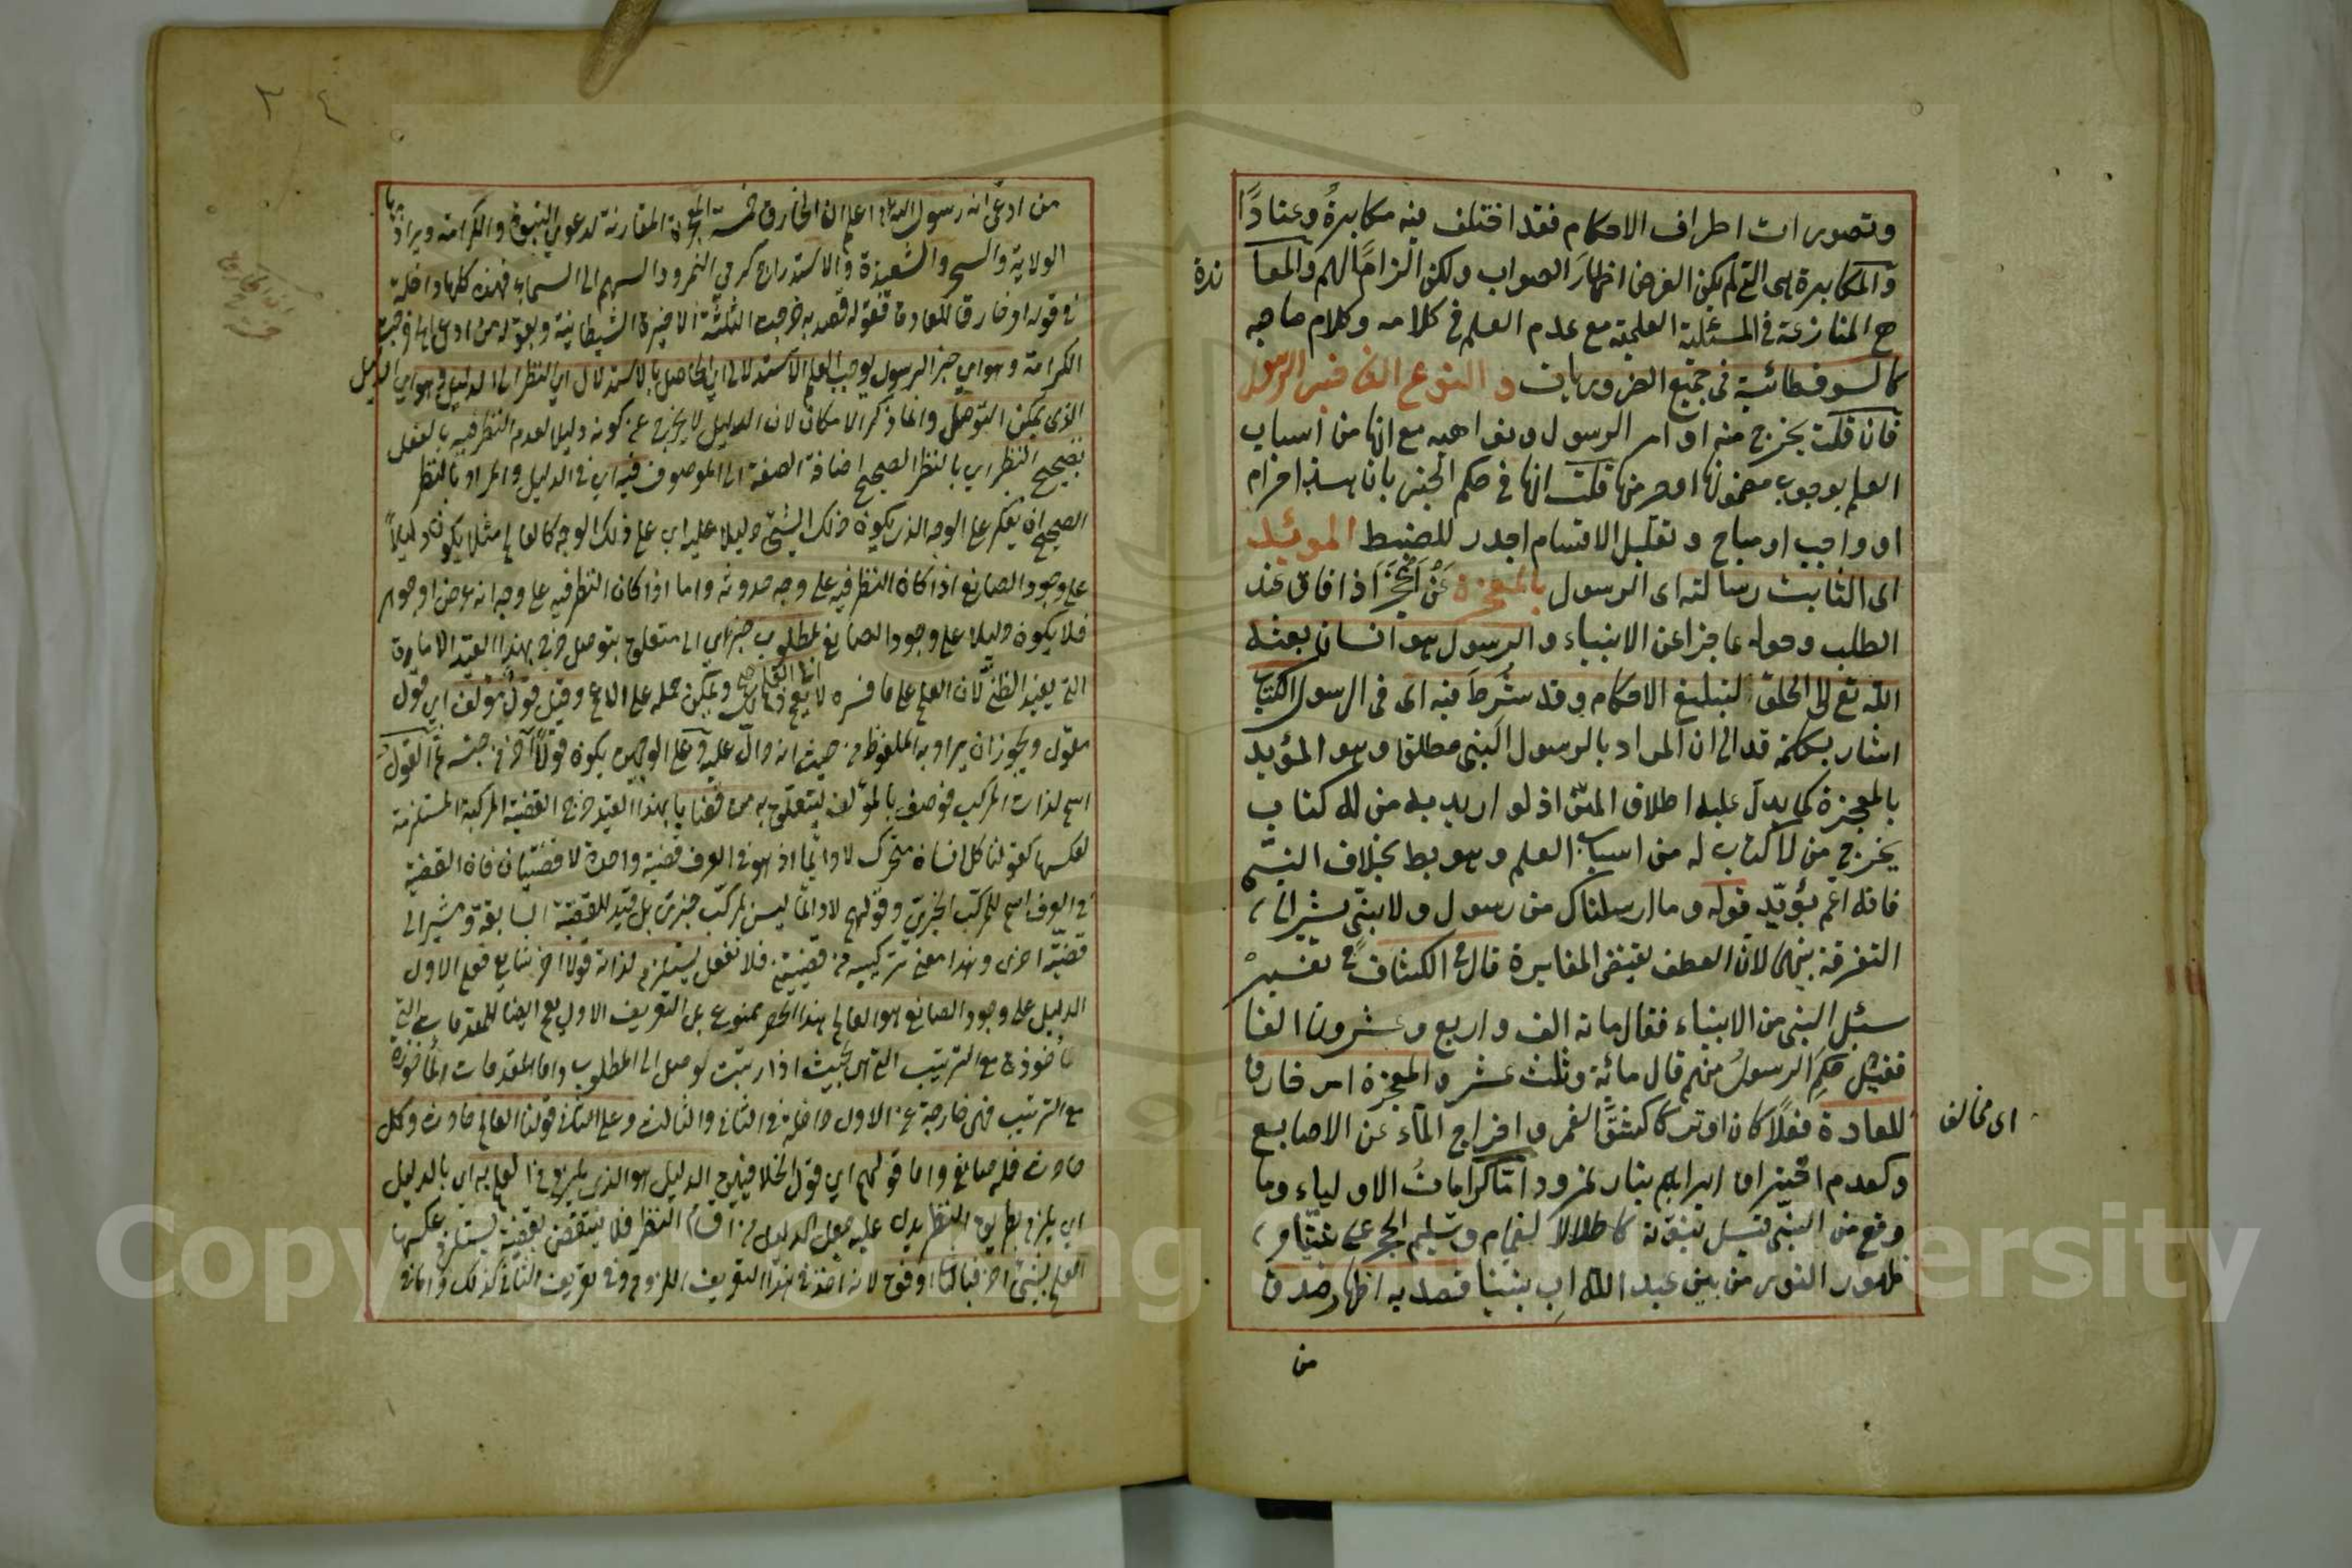 وتصورات اطراف الاحكام فقد اختلف فيه مكابرةً وعنادًا
والمكابرة هى التى لم يكن الغرض اظهارَ الصواب ولكن الزامًا لهم والمعا
ندة
ح المنازعة فى المسئلة العلمية مع عدم العلم فى كلامه وكلام صاحبه
كالسوفسطائية فى جميع الضروريات والنوع الثانى خبر الرسول
فان قلت يخرج منه اوامر الرسول ونواهيه مع انها من اسباب
العلم بوجوب مضمونها قلت انها فى حكم الخبر بان هذا حرام
او واجب او مباح وتقليل الاقسام اجدر للضبط المؤيد
اى الثابت رسالته اى الرسول بالمعجزة اذا فاق عند
الطلب وحوله عاجزا عن الانبياء والرسول هو انسان بعثه
الله تع الى الخلق لتبليغ الاحكام وقد شُرِطَ فيه اى فى الرسول الكتاب
اشار بكلمة قد الى ان المراد بالرسول النبى مطلقا وهو المؤيد
بالمعجزة كما يدل عليه اطلاق المتن اذ لو اريد به من له كتاب
يخرج من لا كتاب له من اسباب العلم وهو بط بخلاف النبى
فانه اعم يؤيد قوله وما ارسلناك من رسول ولا نبى يشير الى
التفرقة بينهما لان العطف يقتضى المغايرة قال فى الكشاف
سئل النبى من الانبياء فقال مائة الف واربع وعشرون الفا
فقيل كم الرسول منهم قال مائة وثلث عشر والمعجزة امر خارق
للعادة فعلًا كان او تركا كشق القمر واخراج الماء عن الاصابع
اى مخالف
وكعدم احتراق ابراهيم بنار نمرود اما كرامات الاولياء وما
وقع من النبى قبل نبوته كاظلال الغمام وتسليم الحجر على
ظهور النور من بين عبد الله اب نبينا قصد به اظهار صدق
من
٣٤
من ادعى انه رسول الله اعلم ان الخارق خمسة المعجزة المقارنة لدعوى النبوة والكرامة ويراد بها
الولاية والسحر والشعبذة والاستدراج كرمى النمرود السهم الى السماء فهذه كلها داخلة
فى قوله امر خارق للعادة فقوله قصد به خرجت الثلثة الاخيرة الشيطانية وبقوله من ادعى خرجت
الكرامة وهو اى خبر الرسول يوجب العلم الاستدلالى اى الحاصل بالاستدلال اى النظر الى الدليل وهو اى الدليل
الذى يمكن التوصل وانما ذكر الامكان لان الدليل لا يخرج عن كونه دليلا لعدم النظر فيه بالفعل
بصحيح النظر اى بالنظر الصحيح اضافة الصفة الى الموصوف فيه اى فى الدليل والمراد بالنظر
الصحيح ان يفكر على الوجه الذى يكون ذلك الشئ دليلا عليه اى على ذلك الوجه كالعالم مثلا يكون دليلاً
على وجود الصانع اذا كان النظر فيه على وجه حدوثه واما اذا كان النظر فيه على وجه انه عرض او جوهر
فلا يكون دليلا على وجود الصانع لمطلوب خبرى اى متعلق بتوصل خرج بهذا القيد الامارة
التى يفيد الظن لان العلم على ما فسره لا يعم ويمكن حمله على الاعم وقيل قول مؤلف اى قول
معقول ويجوز ان يراد به الملفوظ من حيث انه دال عليه وعلى الوجهين يكون قولاً
اسم لذات المركب فوصف بالمؤلف ليتعلق به من قضايا بهذا القيد خرج القضية المركبة المستلزمة
لعكسها كقولنا كل انسان متحرك لا دائما اذ هو فى العرف قضية واحدة لا قضيتان فان القضية
فى العرف اسم للمركب الخبرى وقولهم لا دائما ليس بمركب خبرى بل قيد للقضية السابقة ومشير الى
قضية اخرى وهذا معنى تركيبه من قضيتين فلا تغفل يستلزم لذاته قولا اخر فعلى الاول
الدليل على وجود الصانع هو العالم هذا الحصر ممنوع بل التعريف الاول يعم ايضا للمقدمات التى
مأخوذة مع الترتيب التى بحيث اذا رتبت توصل الى المطلوب واما المقدمات المأخوذة
مع الترتيب فهى خارجة عن الاول داخلة فى الثانى والثالث وعلى الثانى قولنا العالم حادث وكل
حادث فله صانع واما قولهم اى قول الدليل هو الذى يلزم من العلم به اى بالدليل
اى يلزم بطريق النظر يدل عليه جعل الدليل من اقسام النظر فلا ينتقض بقضية يستلزم عكسها
العلم بشئ اخر فبالثانى اوفق لانه اخذ فى هذا التعريف اللزوم وفى تعريف الثانى كذلك